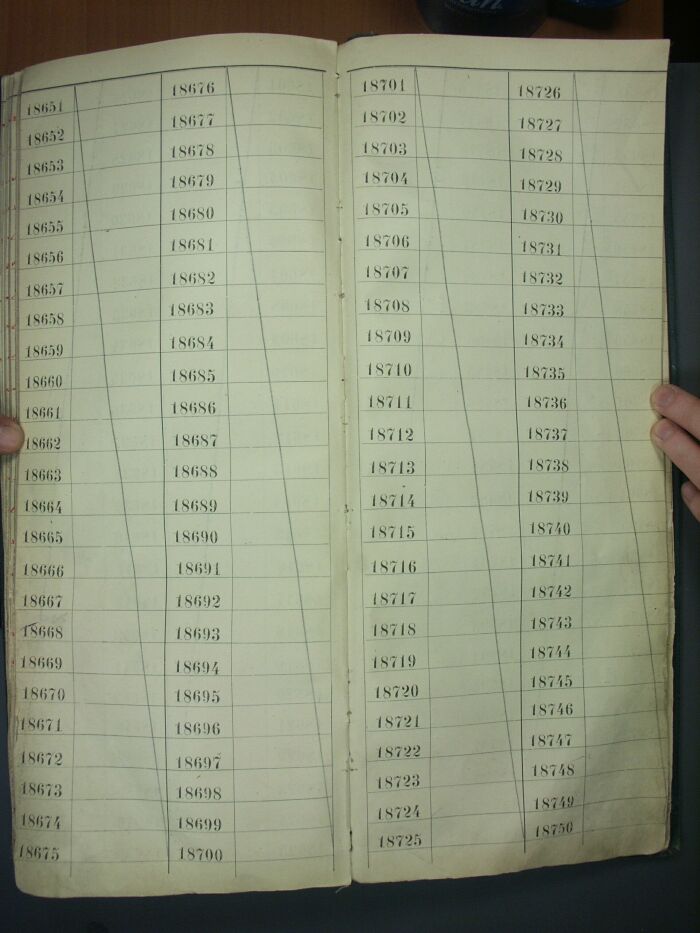 18651
18652
18653
18654
18655
18656
18657
18658
18659
18660
18661
18662
18663
18664
18665
18666
18667
18668
18669
18670
18671
18672
18673
18674
18675
18676
18677
18678
18679
18680
18681
18682
18683
18684
18685
18686
18687
18688
18689
18690
18691
18692
18693
18694
18695
18696
18697
18698
18699
18700
18701
18702
18703
18704
18705
18706
18707
18708
18709
18710
18711
18712
18713
18714
18715
18716
18717
18718
18719
18720
18721
18722
18723
18724
18725
18726
18727
18728
18729
18730
18731
18732
18733
18734
18735
18736
18737
18738
18739
18740
18741
18742
18743
18744
18745
18746
18747
18748
18749
18750